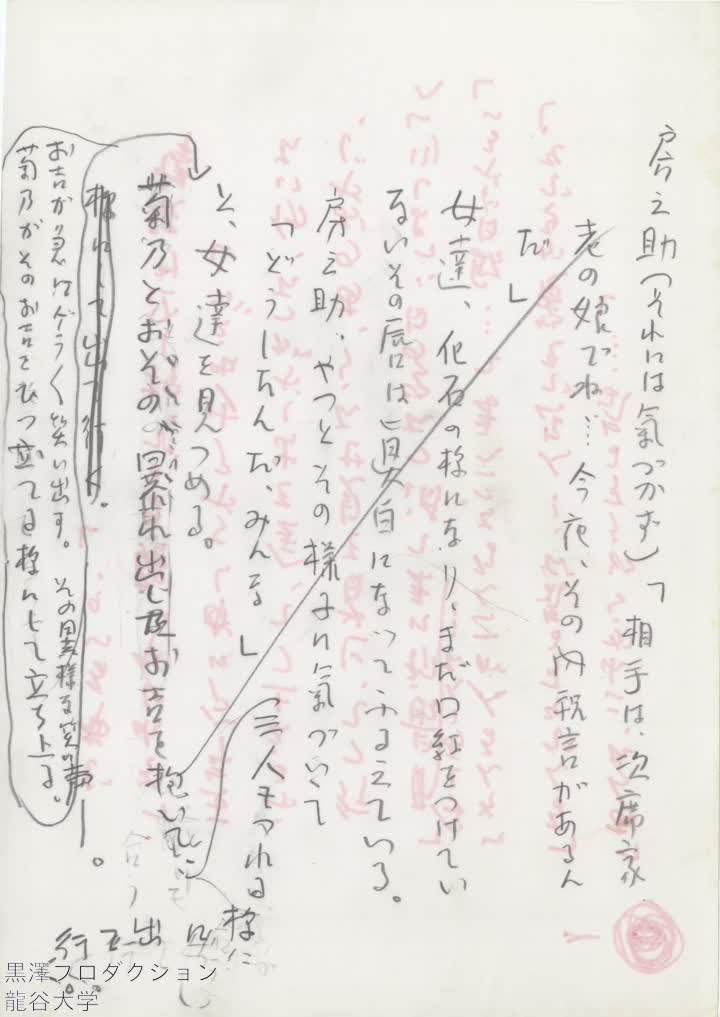 房之助（それには氣づかず）「相手は、次席家
老の娘でね…今夜、その内祝言があるん
だ」
女達、化石の様になり、まだ口紅をつけてい
ないその唇は真白になってふるえている。
房之助、やっとその様子に氣づいて
「どうしたんだ、みんな」
と、女達を見つめる。
菊乃とおその
お吉を抱いて
三人もつれる様に
出て
行く。
様にして出て行く。
お吉が急にゲラゲラ笑い出す。その異様な笑い声―。
菊乃がそのお吉をひっ立てる様にして立ち上る。
黒澤プロダクション
龍谷大学